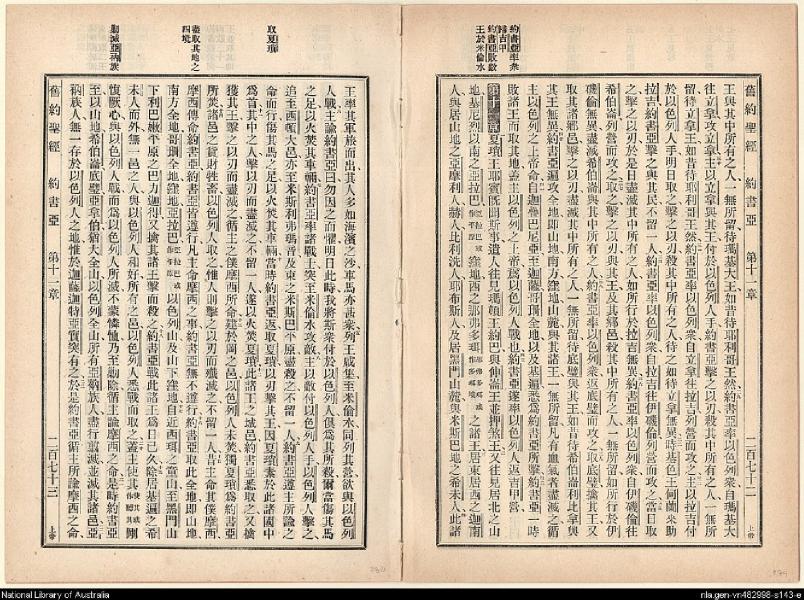 舊約聖經 約書亞 第十一章 二百七十二 上帝
約書亞率衆
歸吉甲
約書亞敗敵
王於米倫水
王與其中所有之人一無所留待瑪基大王如昔待耶利哥王然約書亞率以色列衆自瑪基大
往立拿攻立拿主以立拿與其王付於以色列人手約書亞擊之以刃殺其中所有之人一無所
留待立拿王如昔待耶利哥王然約書亞率以色列衆自立拿往拉吉列營而攻之主以拉吉付
於以色列人手明日取之擊之以刃殺其中所有之人待之如待立拿無異時基色王何蘭來助
拉吉約書亞擊之與其民不留一人約書亞率以色列衆自拉吉往伊磯倫列營而攻之當日取
之擊之以刃於是日盡滅其中所有之人如所行於拉吉無異約書亞率以色列衆自伊磯倫往
希伯崙列營而攻之取之擊之以刃與其王及其屬邑殺其中所有之人一無所留如所行於伊
磯倫無異盡滅希伯崙與其中所有之人約書亞率以色列衆返底璧而攻之取底璧擒其王又
取其諸鄉邑擊之以刃盡滅其中所有之人一無所留待底璧與其王如昔待希伯崙立拿與
其王無異約書亞遍攻全地即山地南方窪地山麓與其諸王一無所留凡有血氣者盡滅之循
主以色列之上帝命自迦疊巴尼亞至迦薩哥珊全地以及基遍悉爲約書亞所擊約書亞一時
敗諸王而取其地蓋主以色列之上帝爲以色列人戰也約書亞遂率以色列人返吉甲營
第十一章 夏瑣王耶賓既聞斯事遣人往見瑪頓王約巴與伸崙王並押煞王又往見居北之山
地基尼烈以南之亞拉巴窪地西之那弗多珥之諸王居東居西之迦南
人與居山地之亞摩利人赫人比利洗人耶布斯人及居黑門山麓與米斯巴地之希未人此諸
取夏瑣
盡取其地之
四境
勦滅亞衲族
王率其軍旅而出其人多如海濱之沙車馬亦甚衆列王咸集至米倫水同列其營欲與以色列
人戰主諭約書亞曰勿因之而懼明日此時我將斯衆付於以色列人俱爲其所殺爾當傷其馬
之足以火焚其車輛約書亞率諸戰士突至米倫水攻敵主以敵付以色列人手以色列人擊之
追至西頓大邑亦至米斯利弗瑪音及東之米斯巴平原盡殺之不留一人約書亞遵主所諭之
命而行傷其馬之足以火焚其車輛當時約書亞返取夏瑣以刃擊其王因夏瑣素於此諸國中
爲首其中之人擊以刃而盡滅之不留一人遂以火焚夏瑣此諸王之城邑約書亞悉取之又擒
獲其王擊之以刃而盡滅之循主之僕摩西所命建於岡之邑以色列人未焚獨夏瑣爲約書亞
所焚諸邑之貨財牲畜以色列人取之惟人則擊之以刃而殲滅之不留一人昔主命其僕摩西
摩西傳命約書亞約書亞皆遵行凡主命摩西之事約書亞無不遵行約書亞取此全地即山地
南方全地哥珊全地窪地亞拉巴以色列山及山下窪地自近西珥之童山至黑門山
下利巴嫩平原之巴力迦得又擒其諸王擊而殺之約書亞戰此諸王爲日已久除居基遍之希
未人而外無一邑之人與以色列人和好所有之邑以色列人悉戰而取之蓋主使其剛
愎厥心與以色列人戰而爲以色列人所滅不蒙憐恤乃至勦除循主諭摩西之命是時約書亞
至以山地希伯崙底璧亞拿伯猶大全山以色列全山所有亞衲族人盡行翦滅並滅其諸邑亞
衲族人無一存於以色列人之地惟於迦薩迦特亞實突有之於是約書亞循主所諭摩西之命
舊約聖經 約書亞 第十一章 二百七十三 上帝
National Library of Australia
nla.gen-vn482998-s143-e